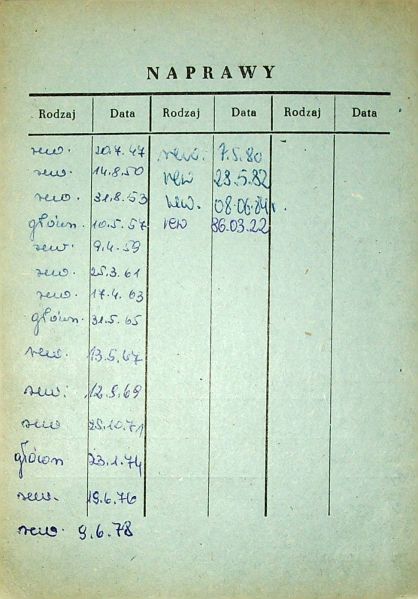 NAPRAWY
Rodzaj Data Rodzaj Data Rodzaj Data
rew. 20.7.47 rew. 7.5.80
rew. 14.8.50 rew 23.5.82
rew. 31.8.53 rew. 08.06.84r.
główn. 10.5.57 rew 86.03.22
rew. 9.4.59
rew. 25.3.61
rew. 17.4.63
główn. 31.5.65
rew. 13.5.67
rew. 12.9.69
rew 25.10.71
główn 23.1.74
rew. 19.6.76
rew. 9.6.78